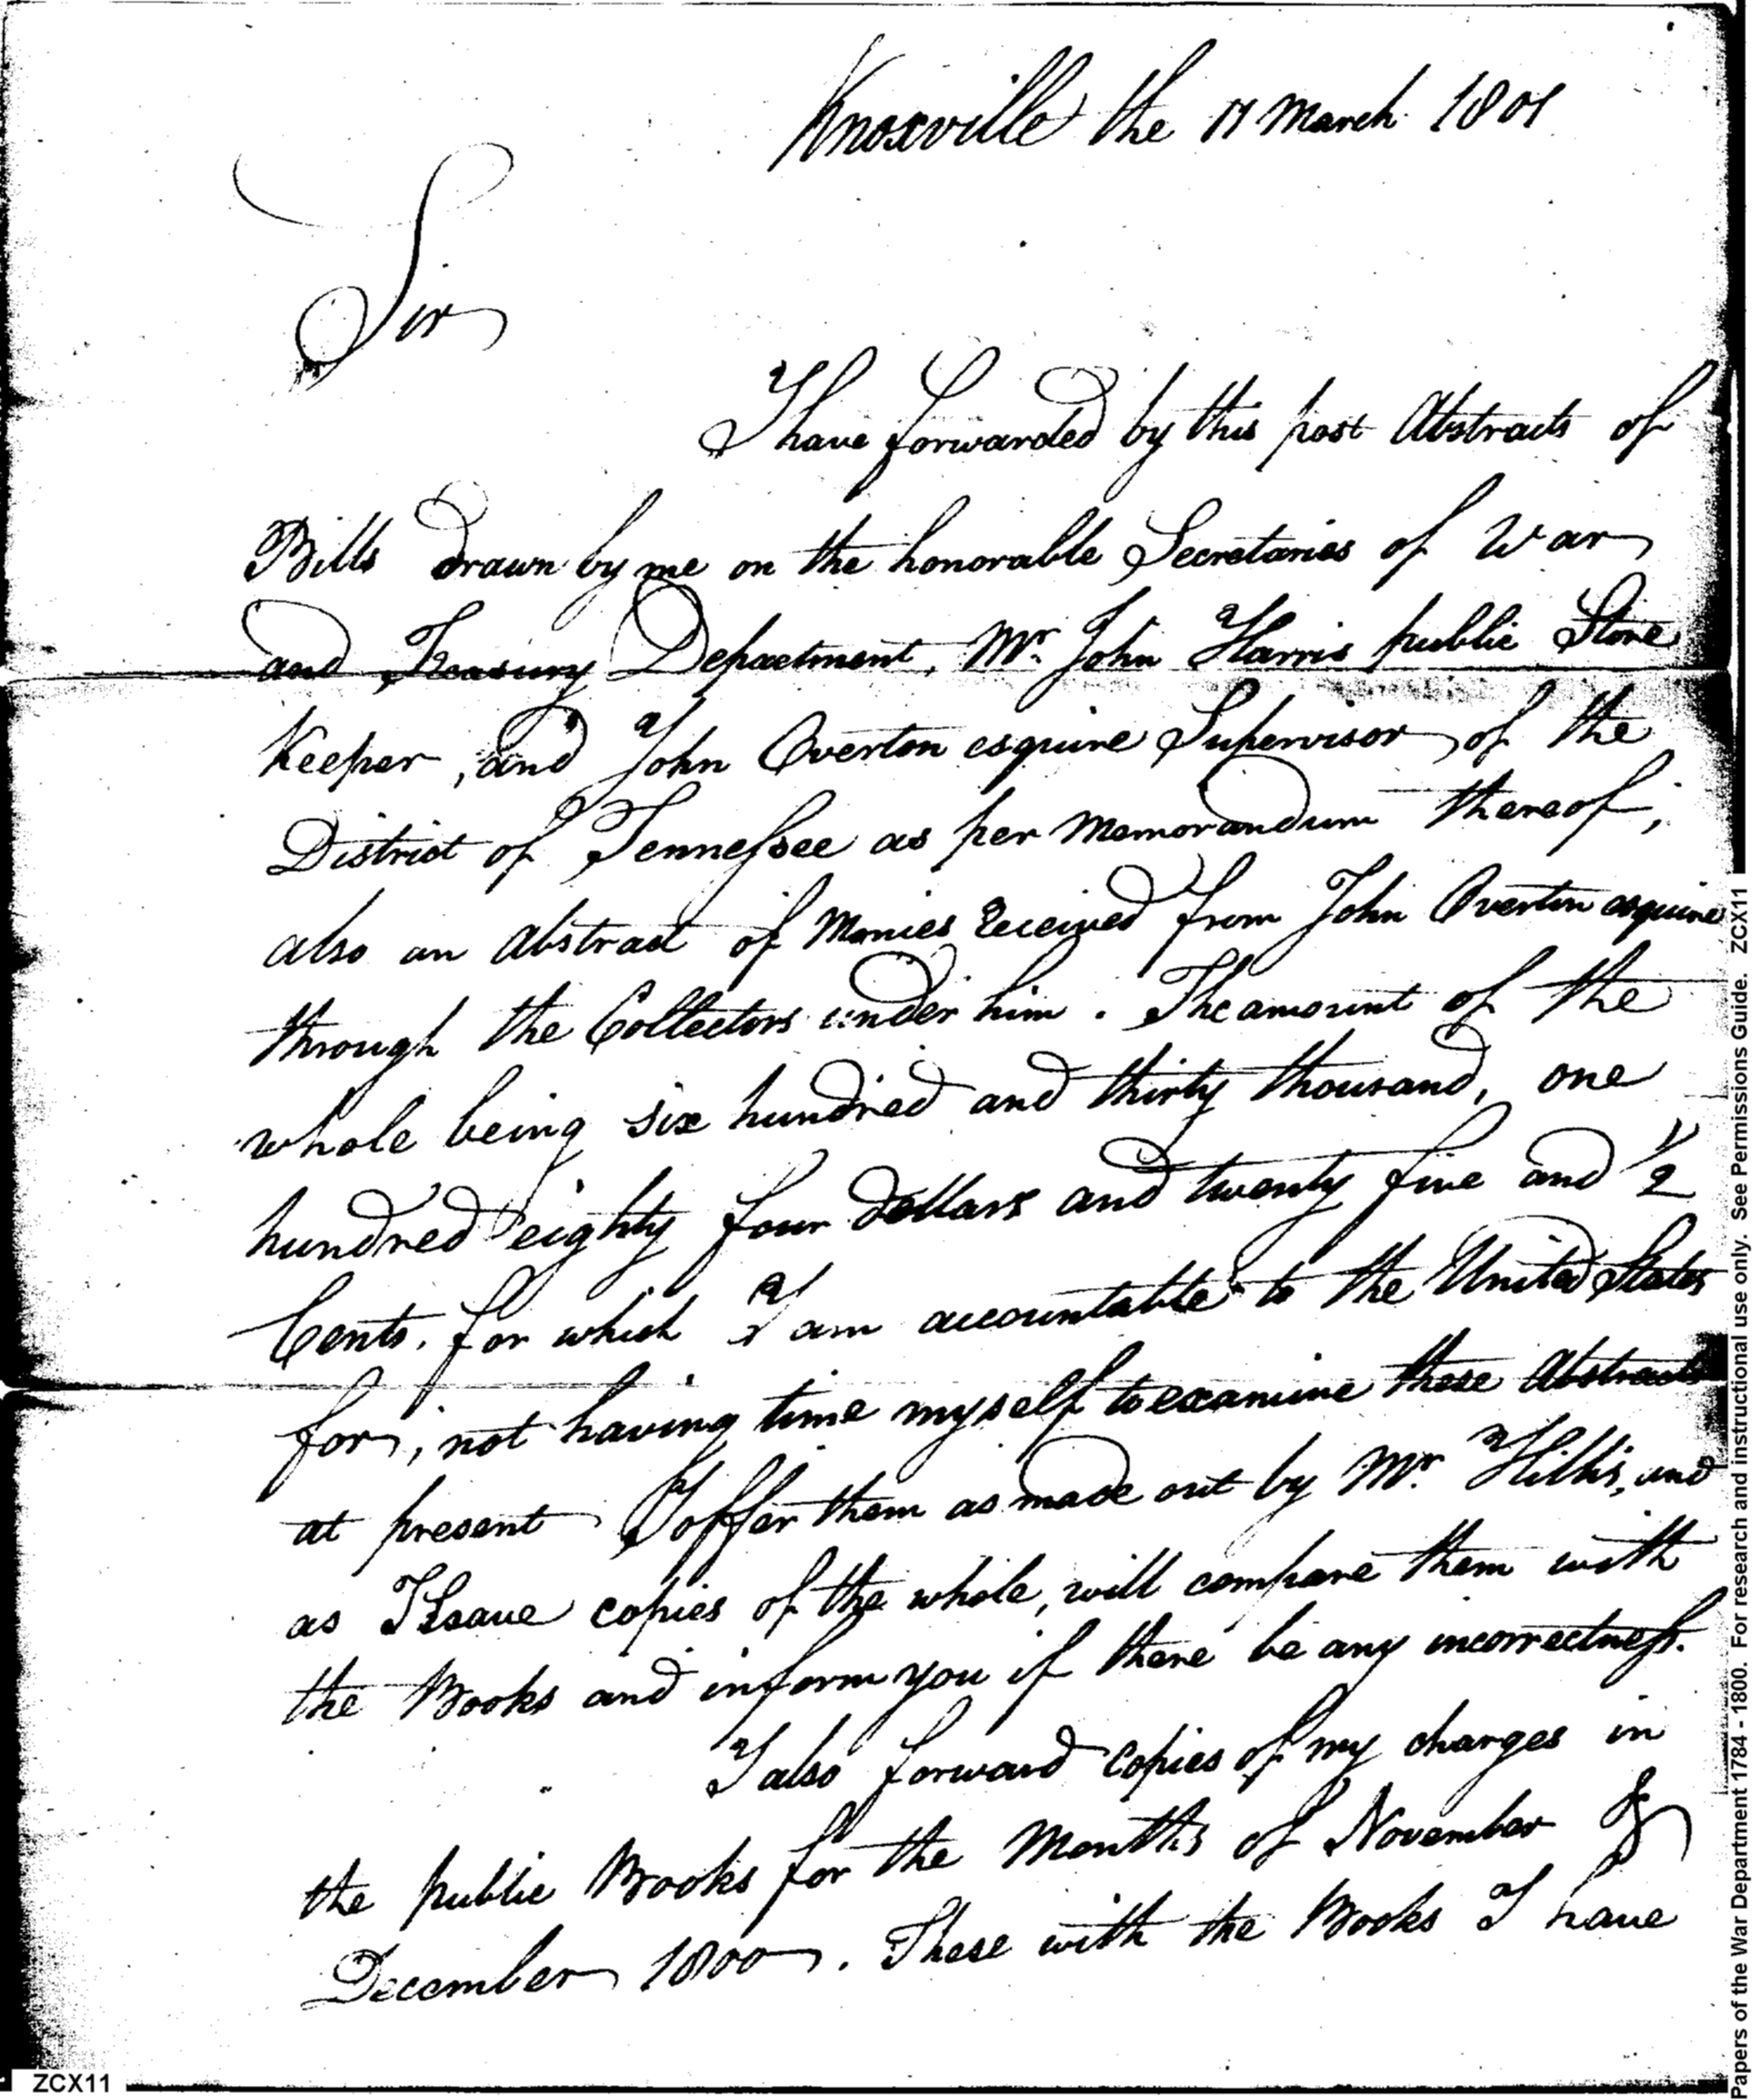 Knoxville the 17 March 1801
Sir
I have forwarded by this post Abstracts of
Bills drawn by me on the honorable Secretaries of War
and Treasury Department, Mr. John Harris public Store
Keeper, and John Overton esquire Supervisor of the
District of Tennessee as per Memorandum thereof;
also an Abstract of Monies Received from John Overton esquire
through the Collectors under him. The amount of the
whole being six hundred and thirty thousand, one
hundred eighty four Dollars and twenty five and 1/2
Cents. for which I am accountable to the United States
for; not having time myself to examine these Abstracts
at present I offer them as made out by Mr. Hillis, and
as I have copies of the whole, will compare them with
the Books and inform you if there be any incorrectness.
I also forward Copies of my charges in
the public Books for the Months of November &
December 1800. These with the Books I have
ZCX11
Papers of the War Department 1784 - 1800. For research and instructional use only. See Permissions Guide. ZCX11